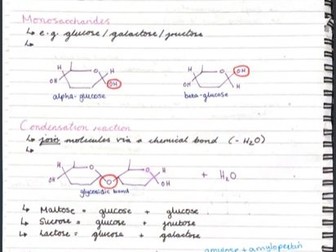 Monosaccharides
↳ e.g. glucose / galactose / fructose
↳
H O H
OH OH
alpha-glucose
H O OH
OH H
beta-glucose
Condensation reaction
↳ join molecules via a chemical bond (-H₂O)
↳
H O H H O H
OH O OH + H₂O
glycosidic bond
↳ Maltose = glucose + glucose
↳ Sucrose = glucose + fructose
↳ Lactose = glucose + galactose
amylose + amylopectin